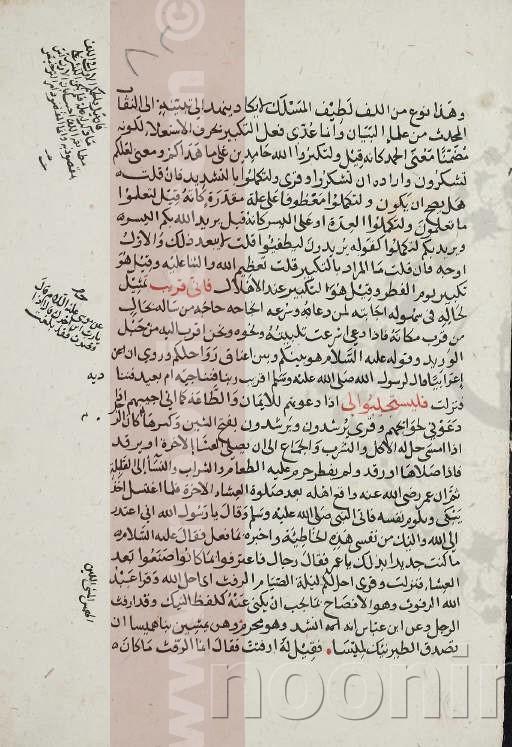 وهذا نوع من اللف لطيف المسلك لا يكاد يهتدى الى تبينه الى النقاب
المحدث من علماء البيان وانما عدى فعل التكبير بحرف الاستعلاء لكونه
مضمنا معنى الحمد كانه قيل ولتكبروا الله حامدين على ما هداكم ومعنى لعلكم
تشكرون وارادة ان تشكروا وقرئ ولتكملوا بالتشديد فان قلت
هل يصح ان يكون ولتكملوا معطوفا على علة مقدرة كانه قيل لتعلموا
ما تعلمون ولتكملوا العدة او على اليسر كانه قيل يريد الله بكم اليسر
ويريد بكم لتكملوا كقوله يريدون ليطفئوا قلت لا يبعد ذلك والاول
اوجه فان قلت ما المراد بالتكبير قلت تعظيم الله والثنا عليه وقيل هو
تكبير يوم الفطر وقيل هو التكبير عند الاهلال فانى قريب تمثيل
لحاله فى سهولة اجابته لمن دعاه وسرعة انجاحه حاجة من ساله بحال
من قرب مكانه فاذا دعى اسرعت تلبيته ونحوه ونحن اقرب اليه من حبل
الوريد وقوله عليه السلام هو بينكم وبين اعناق رواحلكم وروى ان
اعرابيا قال لرسول الله صلى الله عليه وسلم اقريب ربنا فنناجيه ام بعيد فنناديه
فنزلت فليستجيبوا لى اذا دعوتهم للايمان والطاعة كما انى اجيبهم اذا
دعونى لحوائجهم وقرئ يرشدون ويرشدون بفتح الشين وكسرها كان الرجل
اذا امسى حل له الاكل والشرب والجماع الى ان يصلى العشا الاخرة او يرقد
فاذا صلاها او رقد ولم يفطر حرم عليه الطعام والشراب والنسا الى القابلة
ثم ان عمر رضى الله عنه واقع اهله بعد صلوة العشاء الاخرة فلما اغتسل اخذ
يبكى ويلوم نفسه فاتى النبى صلى الله عليه وسلم وقال يا رسول الله انى اعتذر
الى الله واليك من نفسى هذه الخاطئة واخبره بما فعل فقال عليه السلام
ما كنت جديرا بذلك يا عمر فقام رجال فاعترفوا بما كانوا صنعوا بعد
العشا فنزلت وقرئ احل لكم ليلة الصيام الرفث اى احل الله وقرا عبد
الله الرفوث وهو الافصاح بما يجب ان يكنى عنه كلفظ النيك وقد ارفث
الرجل وعن ابن عباس انه انشد وهو محرم وهن يمشين بنا هميسا ان
تصدق الطير ننك لميسا فقيل له ارفثت فقال انما الرفث ما كان
noormags